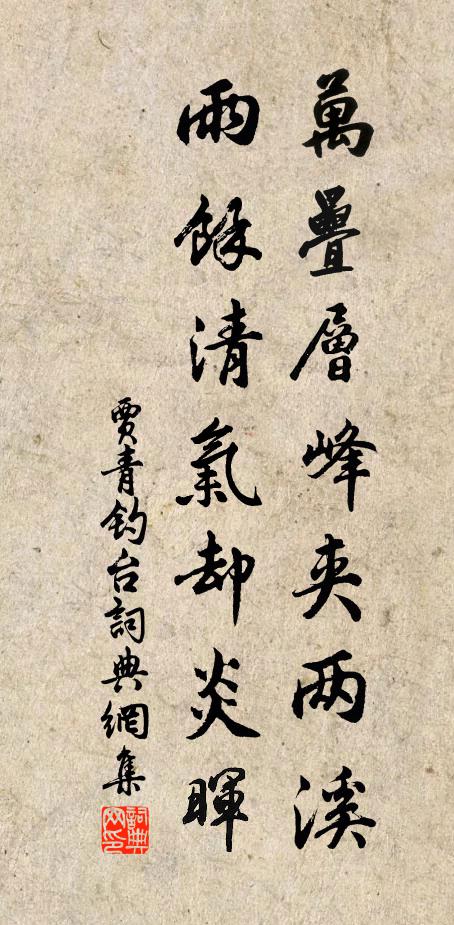 萬疊層峰夾两溪
雨餘清氣却炎暉
賈青钓台詞典網集
詞典网印